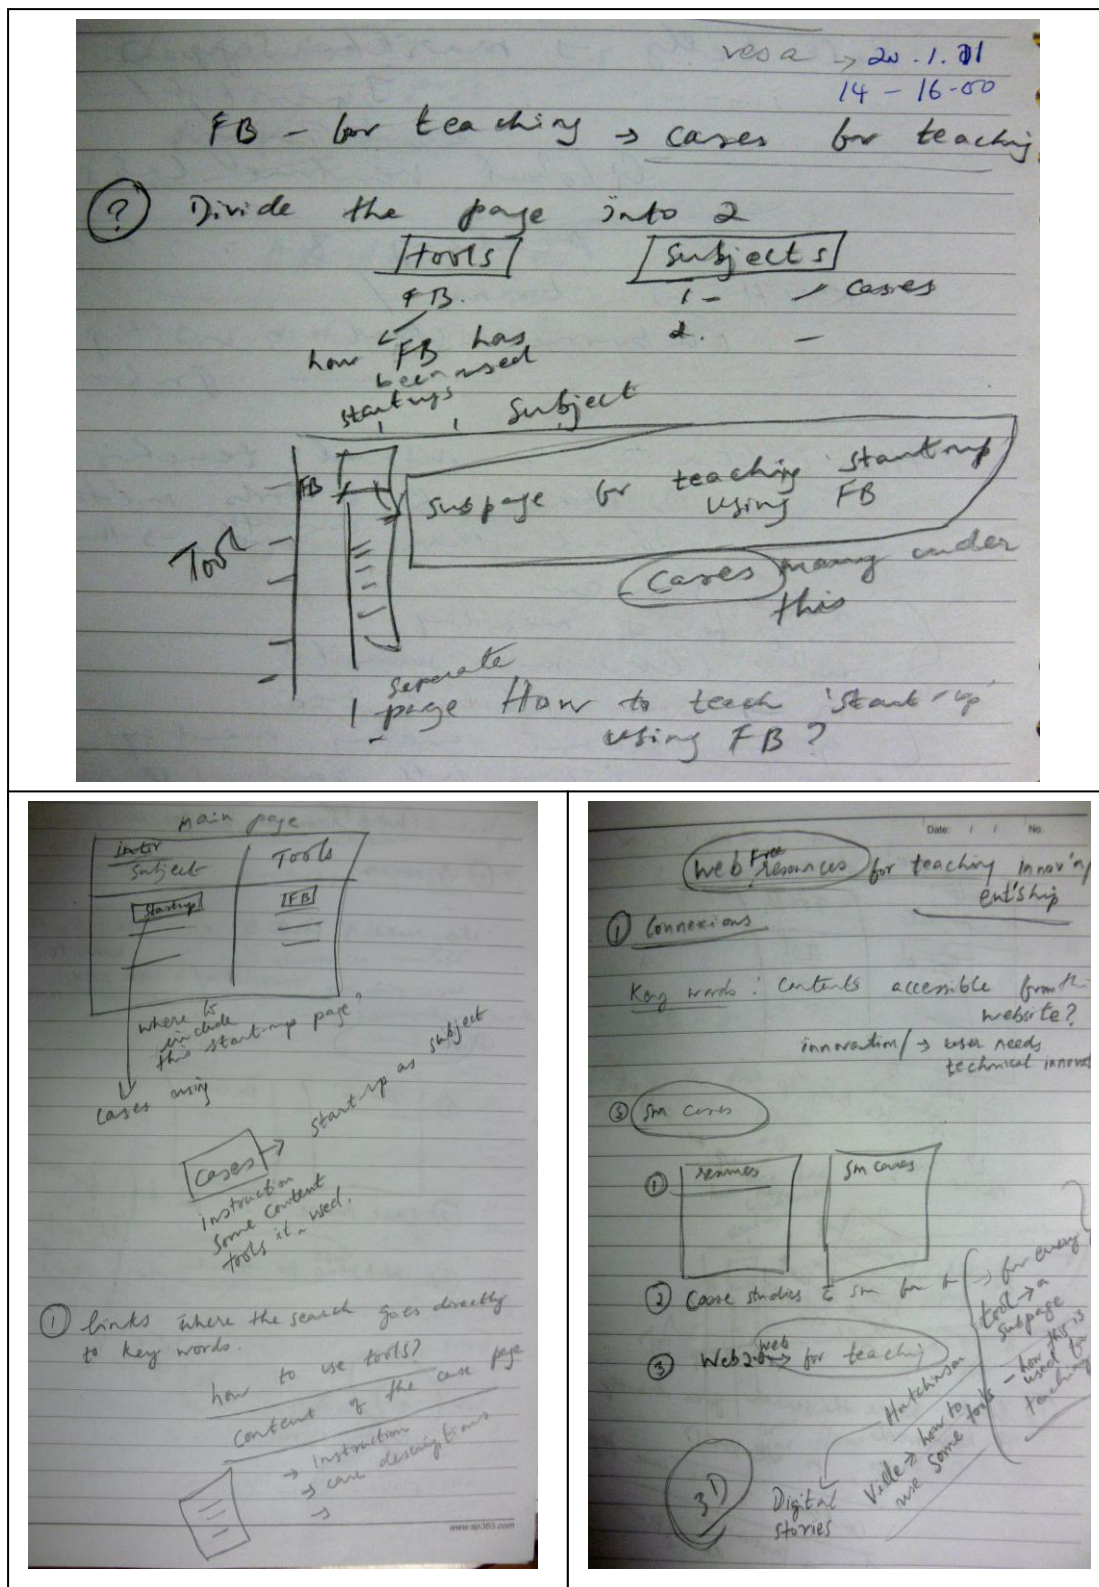 vesa → 20.1.11
14 - 16-00
FB - for teaching → cases for teaching
? Divide the page into 2
tools subjects
FB. 1 - cases
2. -
how FB has
been used
startups Subject
FB
subpage for teaching startup
using FB
Tool
Cases many under
this
separate
1 page How to teach 'start-up'
using FB?
main page
Subject Tools
Startup FB
where to
include
this start-up page?
cases using
start-up as subject
cases →
instruction
some content
tools it used.
① links where the search goes directly
to key words.
how to use tools?
Content of the case page
→ instruction
→ case descriptions
→
www.ap365.com
Date: / / No.
Web Free resources for teaching innov'n
ent'ship
① Connexions
Key words: contents accessible from th
website?
innovation/ → user needs
technical innovat
③ sm cases
① resources sm cases
② Case studies sm for → for every
tool → a
subpage
- how this is
used for
teaching
③ Web2.0 web → for teaching
Hutchinson
Ville → how to
use some tools
3D
Digital
stories